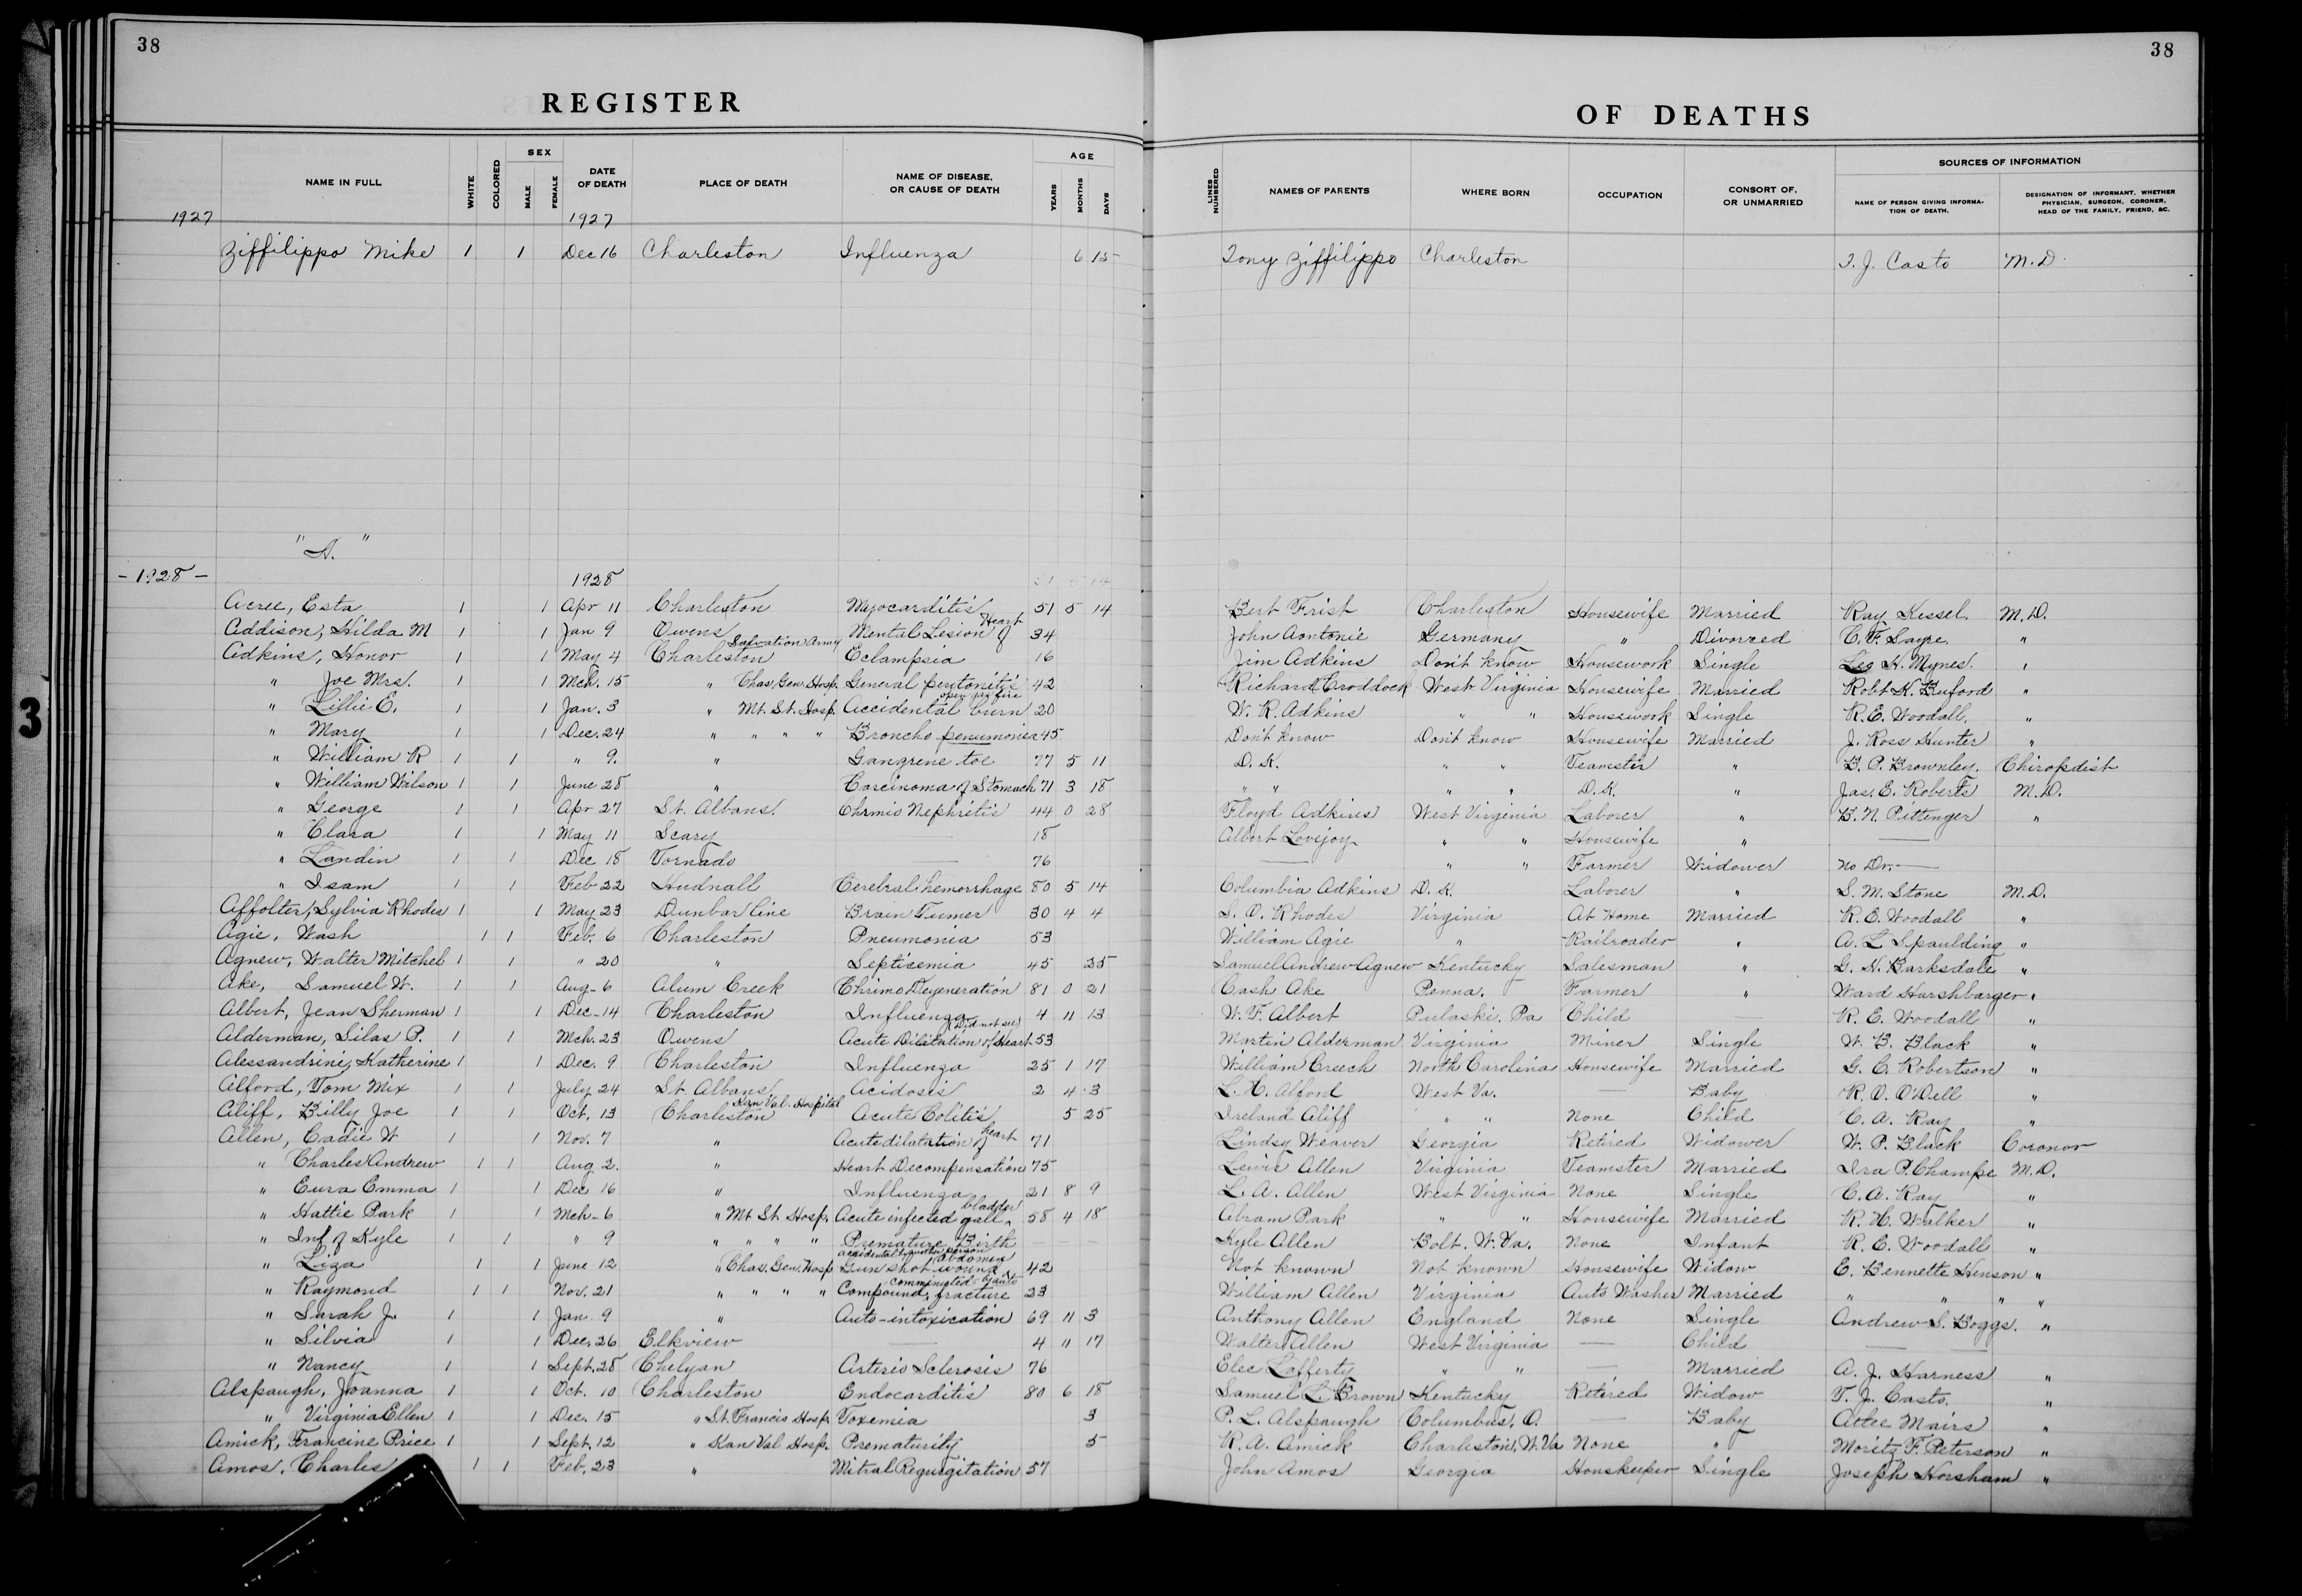 38
38
REGISTER
OF DEATHS
NAME IN FULL WHITE COLORED SEX MALE FEMALE DATE OF DEATH PLACE OF DEATH NAME OF DISEASE, OR CAUSE OF DEATH AGE YEARS MONTHS DAYS LINES NUMBERED NAMES OF PARENTS WHERE BORN OCCUPATION CONSORT OF, OR UNMARRIED SOURCES OF INFORMATION NAME OF PERSON GIVING INFORMATION OF DEATH. DESIGNATION OF INFORMANT, WHETHER PHYSICIAN, SURGEON, CORONER, HEAD OF THE FAMILY, FRIEND, &C.
1927 1927
Ziffilippo Mike 1 1 Dec 16 Charleston Influenza 6 15 Tony Ziffilippo Charleston T. J. Casto M.D.
"A."
-1928- 1928
Acree, Esta 1 1 Apr 11 Charleston Myocarditis 51 5 14 Bert Frist Charleston Housewife Married Ray Kessel. M.D.
Addison, Hilda M 1 1 Jan 9 Owens Mental Lesion of Heart 34 John Aontonie Germany " Divorced C. F. Sayre. "
Adkins, Honor 1 1 May 4 Charleston Salvation Army Eclampsia 16 Jim Adkins Don't know Housework Single Leo H. Mynes. "
" Joe Mrs. 1 1 Mch. 15 " Chas. Gen. Hosp. General peritonitis 42 Richard Croddock West Virginia Housewife Married Robt H. Buford "
" Lillie E. 1 1 Jan. 3 " Mt. St. Hosp. Accidental burn open gas fire 20 W. R. Adkins " " Housework Single R. E. Woodall. "
" Mary 1 1 Dec. 24 " " " " Broncho penumonia 45 Don't know Don't know Housewife Married J. Ross Hunter "
" William R 1 1 " 9. " Gangrene toe 77 5 11 D. K. " " Teamster " B. P. Brownley. Chiropdist
" William Wilson 1 1 June 28 " Carcinoma of Stomach 71 3 18 " " " " D. K. " Jas. E. Roberts M.D.
" George 1 1 Apr 27 St. Albans. Chrnis Nephritis 44 0 28 Floyd Adkins West Virginia Laborer " B. N. Pittenger "
" Clara 1 1 May 11 Scary — 18 Albert Lovejoy " " Housewife " —
" Landin 1 1 Dec 18 Tornado — 76 — " " Farmer Widower No Dr. —
" Isam 1 1 Feb 22 Hudnall Cerebral hemorrhage 80 5 14 Columbia Adkins D. K. Laborer " S. M. Stone M.D.
Affolter, Sylvia Rhodes 1 1 May 23 Dunbar line Brain Tumer 30 4 4 S. O. Rhodes Virginia At Home Married R. E. Woodall "
Agie, Wash 1 1 Feb. 6 Charleston Pneumonia 53 William Agie " Railroader " A. L Spaulding "
Agnew, Walter Mitchel 1 1 " 20 " Septicemia 45 25 Samuel Andrew Agnew Kentucky Salesman " G. H. Barksdale "
Ake, Samuel W. 1 1 Aug- 6 Alum Creek Chrimo Degeneration 81 0 21 Cash Ake Penna. Farmer " Ward Harshbarger "
Albert, Jean Sherman 1 1 Dec-14 Charleston Influenza 4 11 13 W. F. Albert Pulaski. Pa Child — R. E. Woodall "
Alderman, Silas P. 1 1 Mch. 23 Owens Acute Dilitation of Heart (Did not see) 53 Martin Alderman Virginia Miner Single W. B. Black "
Alessandrini, Katherine 1 1 Dec. 9 Charleston Influenza 25 1 17 William Creech North Carolina Housewife Married G. C. Robertson "
Alford, Tom Mix 1 1 July 24 St. Albans Acidosis 2 4 3 L. H. Alford West Va. — Baby R. O. O'Dell "
Aliff, Billy Joe 1 1 Oct. 13 Charleston Kan Val. Hospital Acute Colitis 5 25 Ireland Aliff " " None Child C. A. Ray "
Allen, Cadie W 1 1 Nov. 7 " Acute dilatation of heart 71 Lindsy Weaver Georgia Retired Widower W. P. Black Coronor
" Charles Andrew 1 1 Aug 2. " Heart Decompensation 75 Lewis Allen Virginia Teamster Married Ira P. Champe M.D.
" Eura Emma 1 1 Dec 16 " Influenza 21 8 9 L. A. Allen West Virginia None Single C. A. Ray "
" Hattie Park 1 1 Mch-6 " Mt St Hosp. Acute infected gall bladder 58 4 18 Abram Park " " Housewife Married R. H. Walker "
" Inf of Kyle 1 1 " 9 " " " " Premature Birth — — — Kyle Allen Bolt. W. Va. None Infant R. E. Woodall "
" Liza 1 1 June 12 " Chas. Gen. Hosp Gun shot wound abdomen accidental by another person 42 Not known Not known Housewife Widow E. Bennette Henson "
" Raymond 1 1 Nov. 21 " " " " Compound comminuted fracture by auto 23 William Allen Virginia Auto Washer Married " " " "
" Sarah J. 1 1 Jan. 9 " Auto-intoxication 69 11 3 Anthony Allen England None Single Andrew S. Boggs. "
" Silvia 1 1 Dec. 26 Elkview — 4 11 17 Walter Allen West Virginia — Child —
" Nancy 1 1 Sept. 28 Chelyan Arterio Sclerosis 76 Elec Lafferty " " — Married A. J. Harness "
Alspaugh, Joanna 1 1 Oct. 10 Charleston Endocarditis 80 6 18 Samuel L. Brown Kentucky Retired Widow T. J. Casto. "
" Virginia Ellen 1 1 Dec. 15 " St. Francis Hosp. Toxemia 3 P. L. Alspaugh Columbus, O. — Baby Attee Mairs "
Amick, Francine Price 1 1 Sept. 12 " Kan Val Hosp. Prematurity 5 R. A. Amick Charleston, W. Va None " Moritz F. Peterson "
Amos, Charles 1 1 Feb. 23 " Mitral Regurgitation 57 John Amos Georgia Houskeeper Single Joseph Horsham "
3